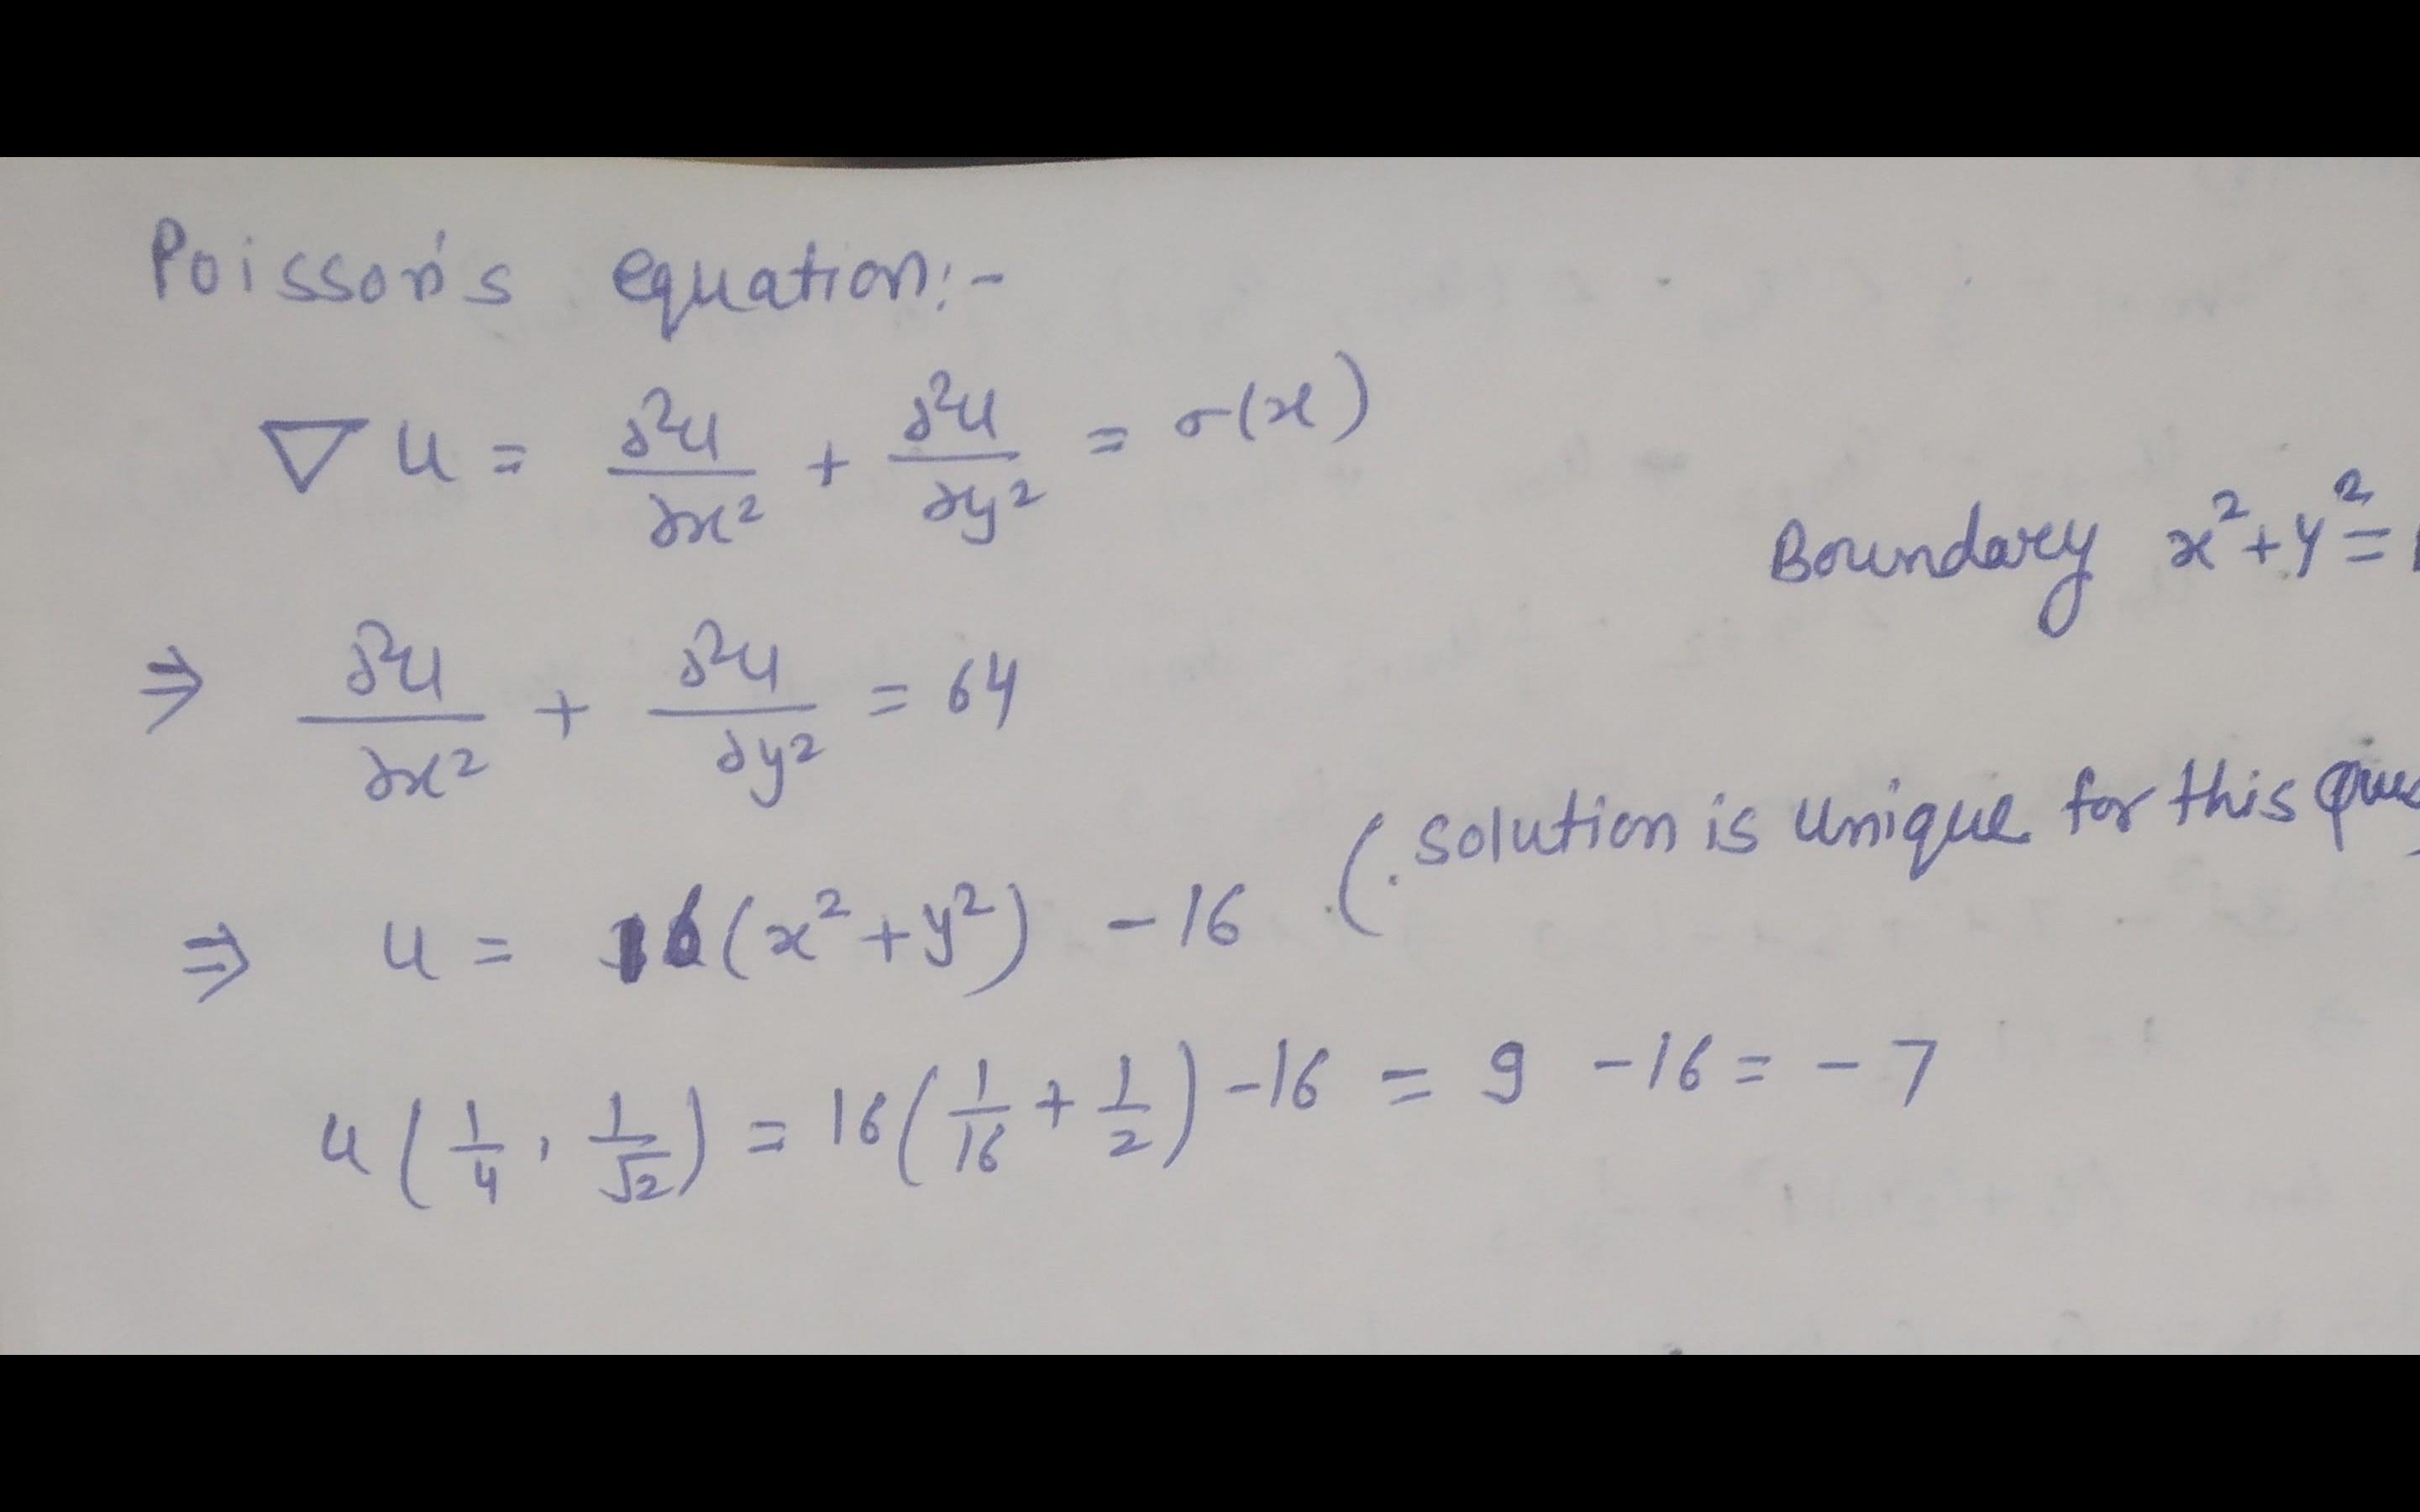 Poisson's equation:-
▽ u = ∂²u/∂x² + ∂²u/∂y² = σ(x)
Boundary x²+y²=
⇒ ∂²u/∂x² + ∂²u/∂y² = 64
(. solution is unique for this
⇒ u = 16(x²+y²) -16
u(1/4, 1/√2) = 16(1/16 + 1/2) -16 = 9 -16 = -7